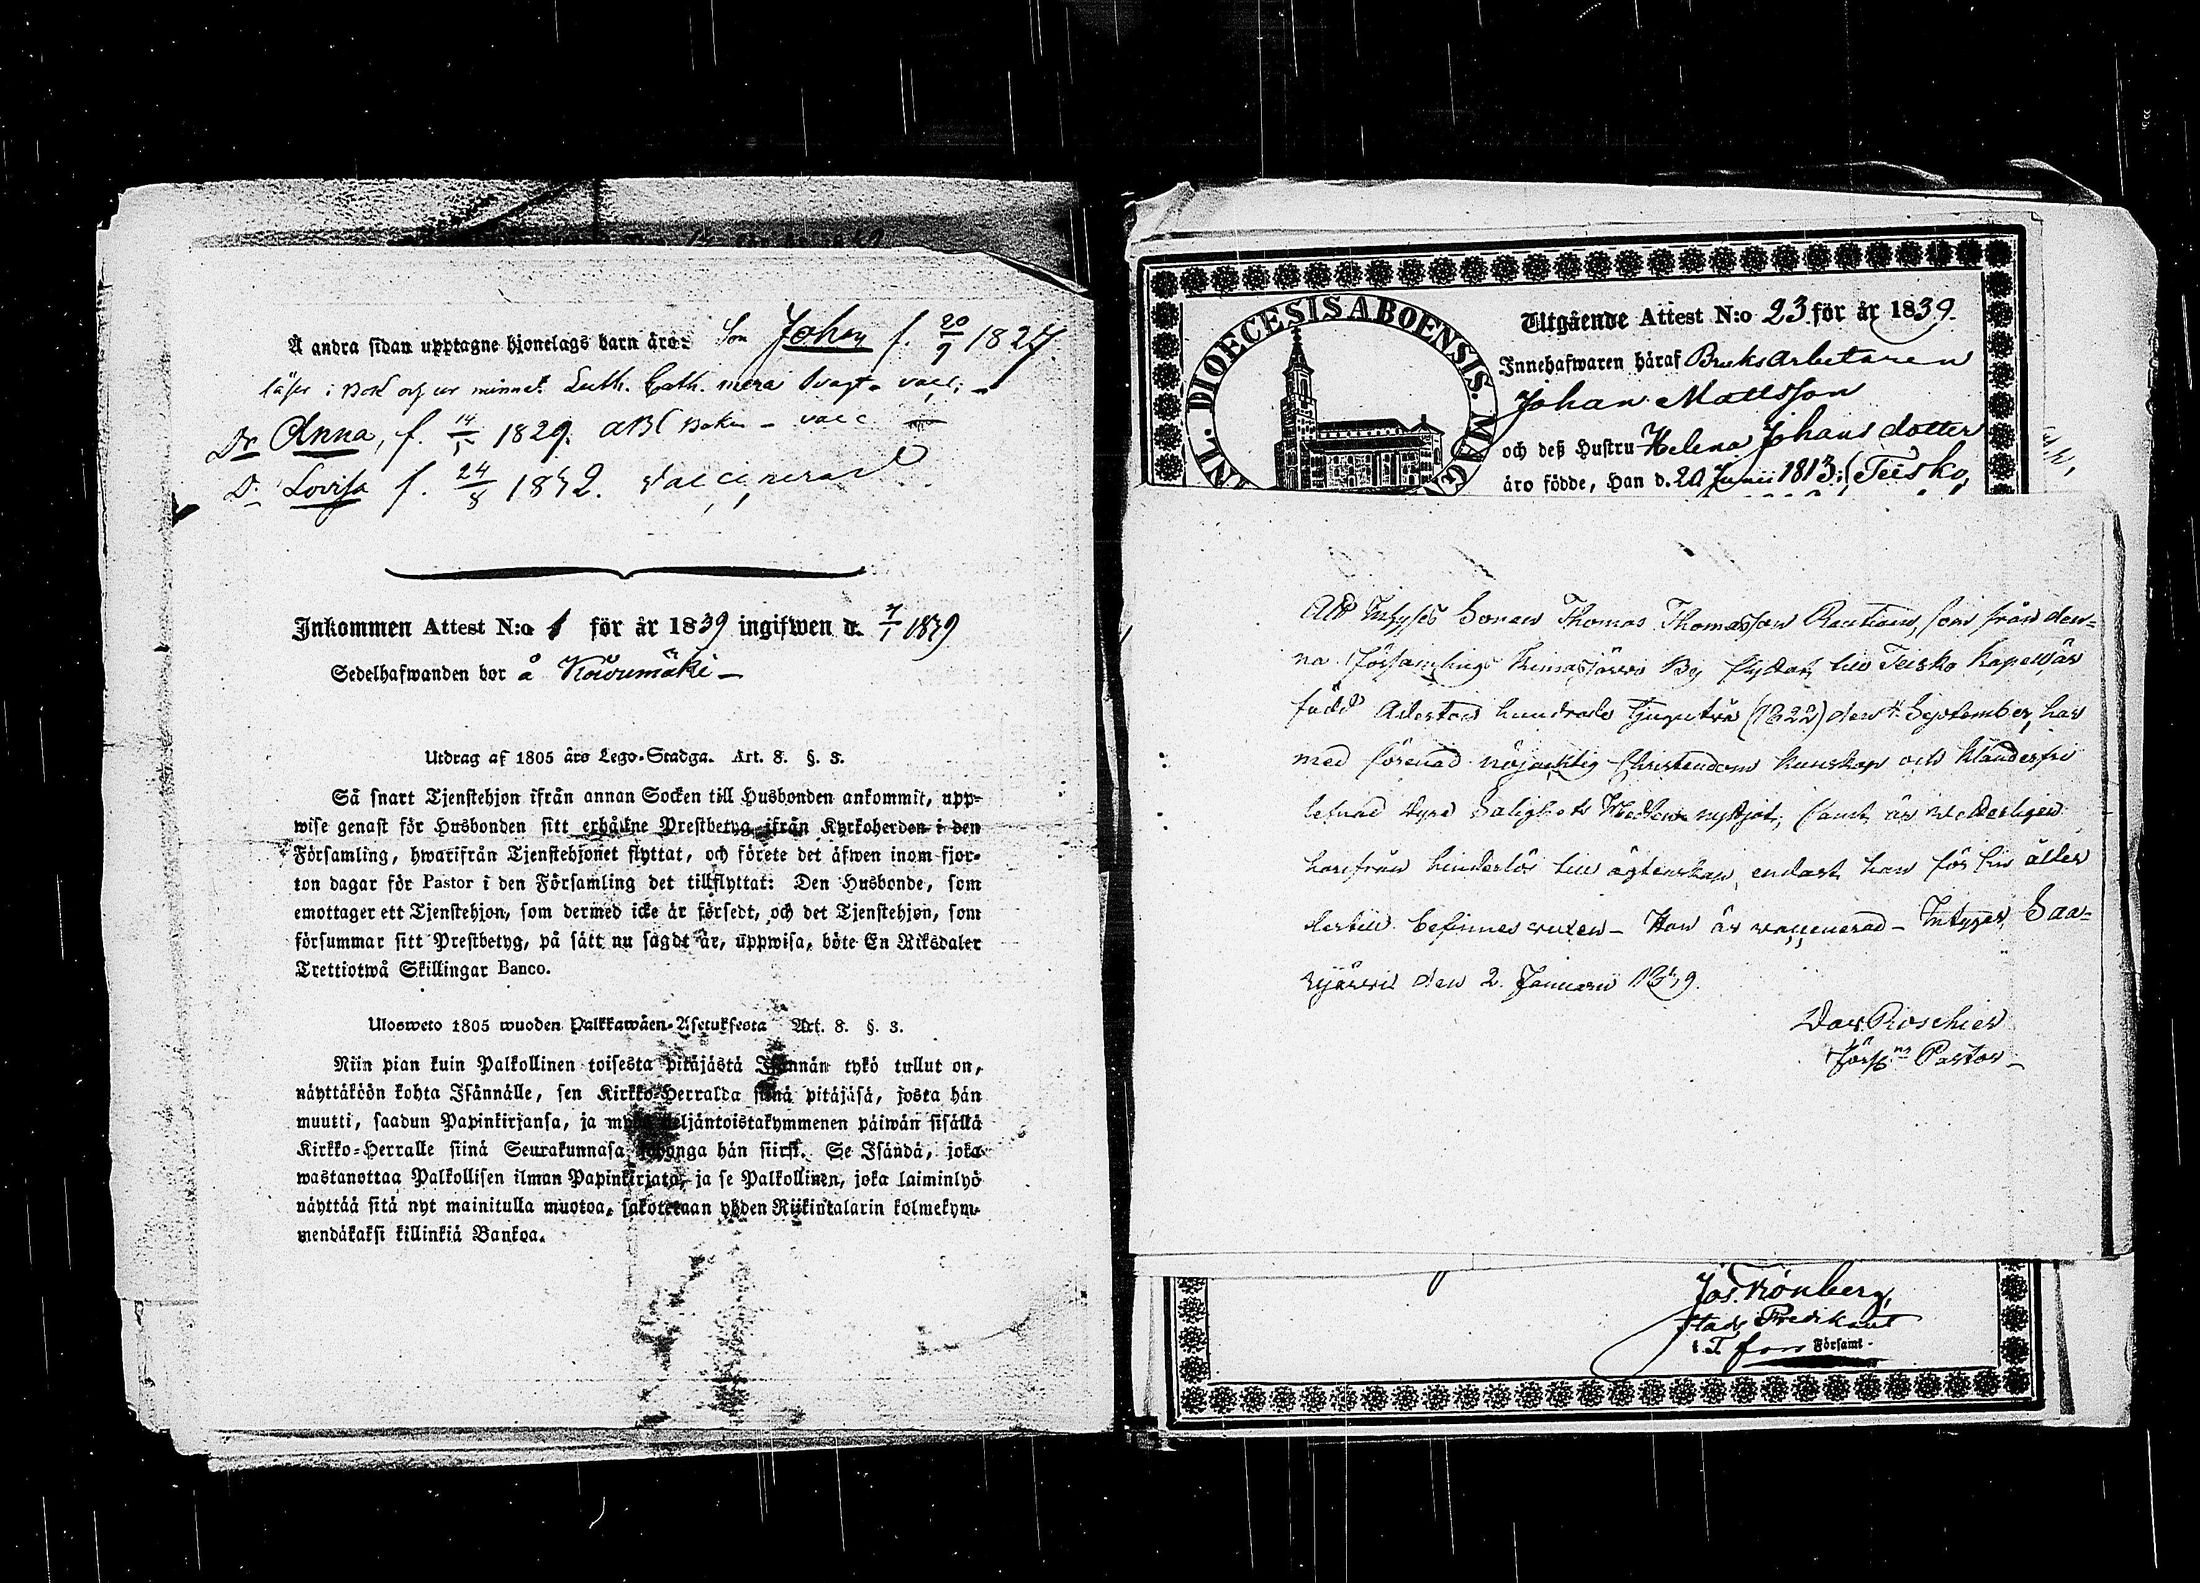 Å andra sidan upptagne hjonelags barn äro: Son Johan f. 20/9 1827.
läser i Bok och ur minnet Luth. Cath. mera svagt - vacc. -
Dr Anna, f. 14/5 1829. ABC Boken - vacc
D. Lovisa f. 24/8 1832. Vaccinerad
Inkommen Attest N:o 1 för år 1839 ingifwen d. 7/1 1839
Sedelhafwanden bor å
Utdrag af 1805 års Lego-Stadga. Art. 8. §. 3.
Så snart Tjenstehjon ifrån annan Socken till Husbonden ankommit, upp-
wise genast för Husbonden sitt erhållne Prestbetyg ifrån Kyrkoherden i den
Församling, hwarifrån Tjenstehjonet flyttat, och förete det äfwen inom fjor-
ton dagar för Pastor i den Församling det tillflyttat: Den Husbonde, som
emottager ett Tjenstehjon, som dermed icke är försedt, och det Tjenstehjon, som
försummar sitt Prestbetyg, på sätt nu sagdt är, uppwisa, böte En Riksdaler
Trettiotwå Skillingar Banco.
Ulosweto 1805 wuoden Palkkawäen-Asetuksesta Art. 8. §. 3.
Niin pian kuin Palkollinen toisesta pitäjästä Isännän tykö tullut on,
näyttäköön kohta Isännälle, sen Kirkko-Herralda siinä pitäjäsä, josta hän
muutti, saadun Papinkirjansa, ja myös neljäntoistakymmenen päiwän sisällä
Kirkko-Herralle siinä Seurakunnasa, johonga hän siirsi. Se Isändä, joka
wastanottaa Palkollisen ilman Papinkirjata, ja se Palkollinen, joka laiminlyö
näyttää sitä nyt mainitulla muotoa, sakotetaan yhden Riikintalarin kolmekym-
mendäkaksi killinkiä Bankoa.
DIOECESIS ABOENSIS. MAGNI
Utgående Attest N:o 23 för år 1839.
Innehafwaren häraf Bruksarbetaren
Johan Mattsson
och deß Hustru Helena Johans dotter
äro födde, Han d. 20 Junii 1813 i Teisko,
Att Intyges Sonen Thomas Thomasson Rautian, som från den-
na Församlings By flyttat till Teisko Kapell, är
född Adertonhundrade Tjugutvå (1822) den 4 September, har
med förenad nöjaktig Christendoms kunskap och klanderfri
lefnad dyra Salighets Medlen nyttjat, samt är
härifrån hinderlös till ägtenskap, endast han för sin ålder
dertill befinnes vuxen - Han är vaccinerad - Intyges, Saa-
rijärvi den 2. Januarii 1839.
Dav. Roschier
Förs:ns Pastor -
Jos. Grönberg,
Stads Predikant
i T förs Församl-